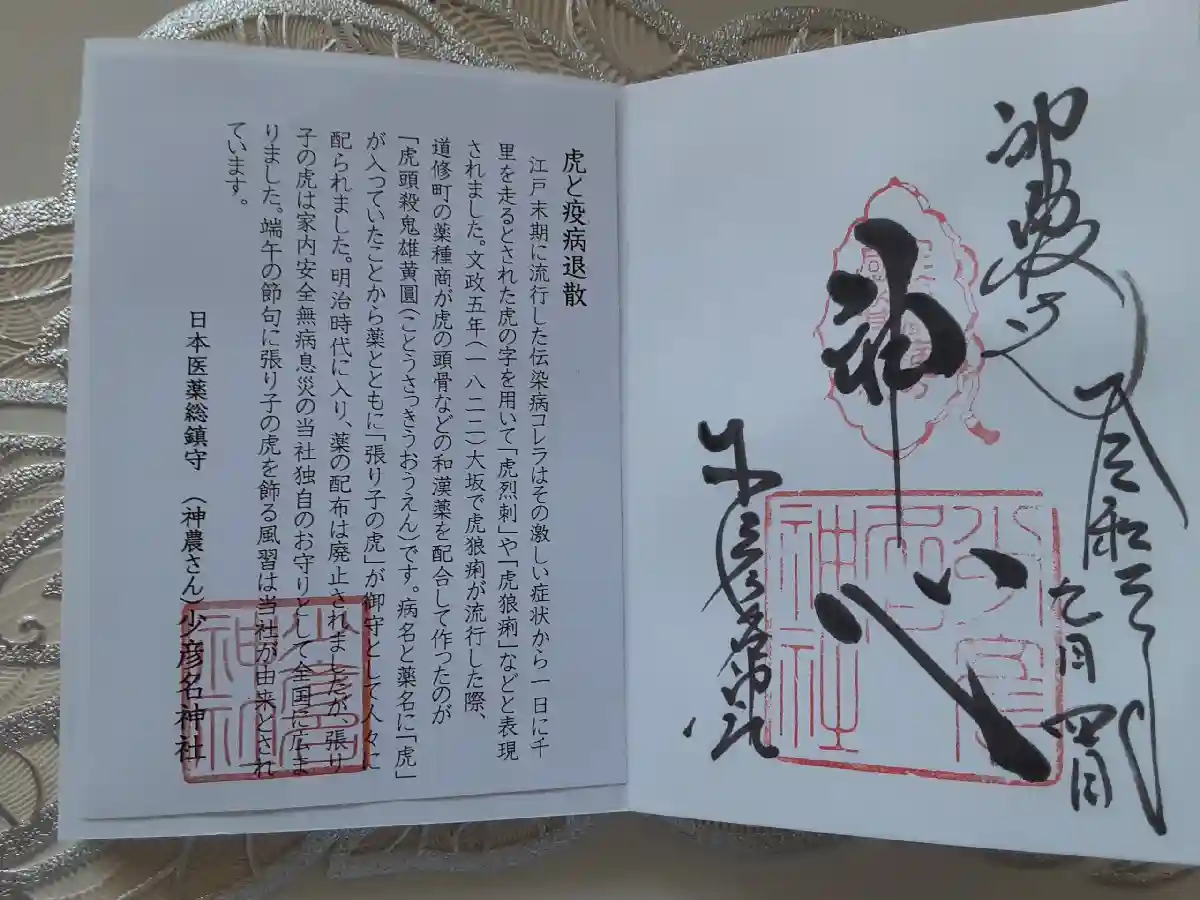 奉拝
令和三年
七月四日
神
少彦名神社
虎と疫病退散
江戸末期に流行した伝染病コレラはその激しい症状から一日に千
里を走るとされた虎の字を用いて「虎烈刺」や「虎狼痢」などと表現
されました。文政五年(一八二二)大坂で虎狼痢が流行した際、
道修町の薬種商が虎の頭骨などの和漢薬を配合して作ったのが
「虎頭殺鬼雄黄圓(ことうさっきうおうえん)です。病名と薬名に「虎」
が入っていたことから薬とともに「張り子の虎」が御守として人々に
配られました。明治時代に入り、薬の配布は廃止されましたが、張り
子の虎は家内安全無病息災の当社独自のお守りとして全国に広ま
りました。端午の節句に張り子の虎を飾る風習は当社が由来とされ
ています。
日本医薬総鎮守 (神農さん)少彦名神社